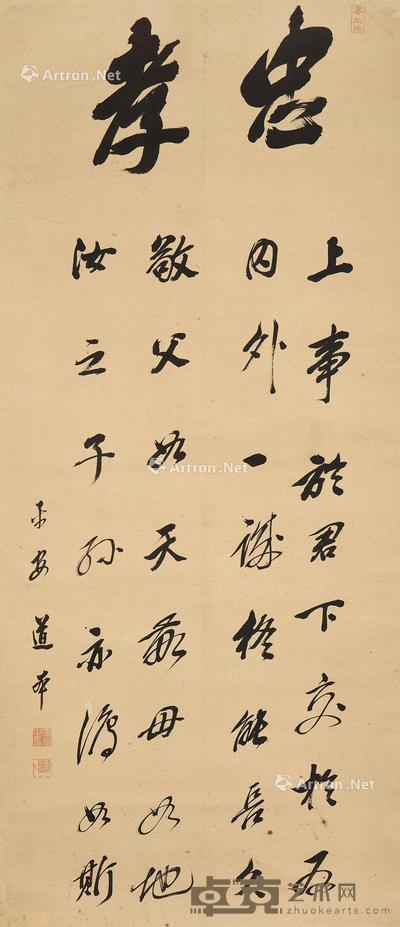 忠孝
上事於君下交於友
内外一誠終能長久
敬父如天敬母如地
汝之子孫亦復如斯
平安 道本
Artron.Net
Artron.Net
Artron.Net
Artron.Net
Artron.Net
卓克艺术网
zhuokearts.com